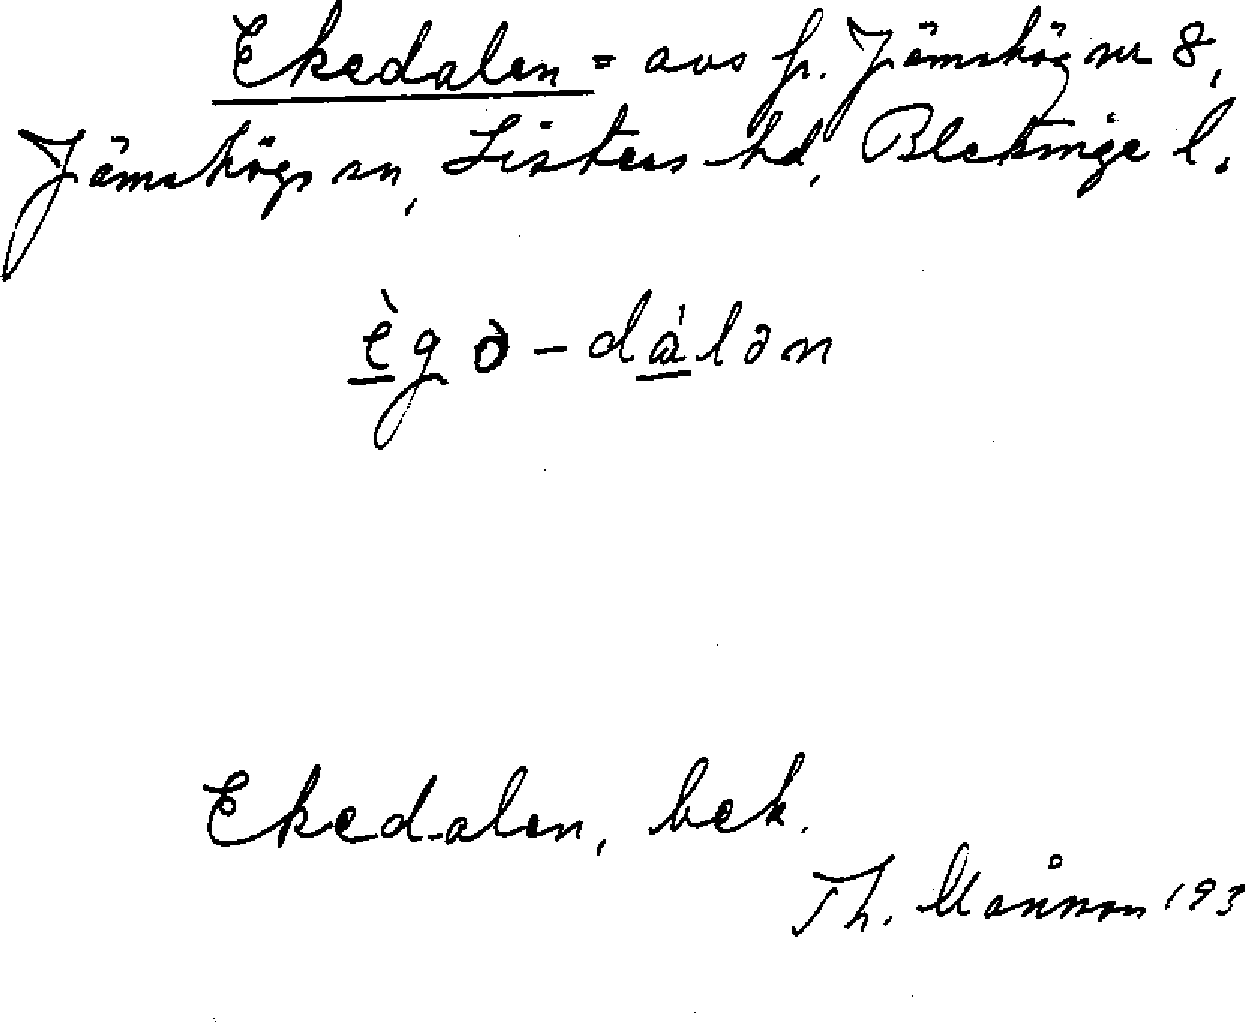 Ekedalen = avs fr. Jämshög nr 8,
Jämshögs sn, Listers hd, Blekinge l.
ègə-dálən
Ekedalen, bek.
Th. Månson 193